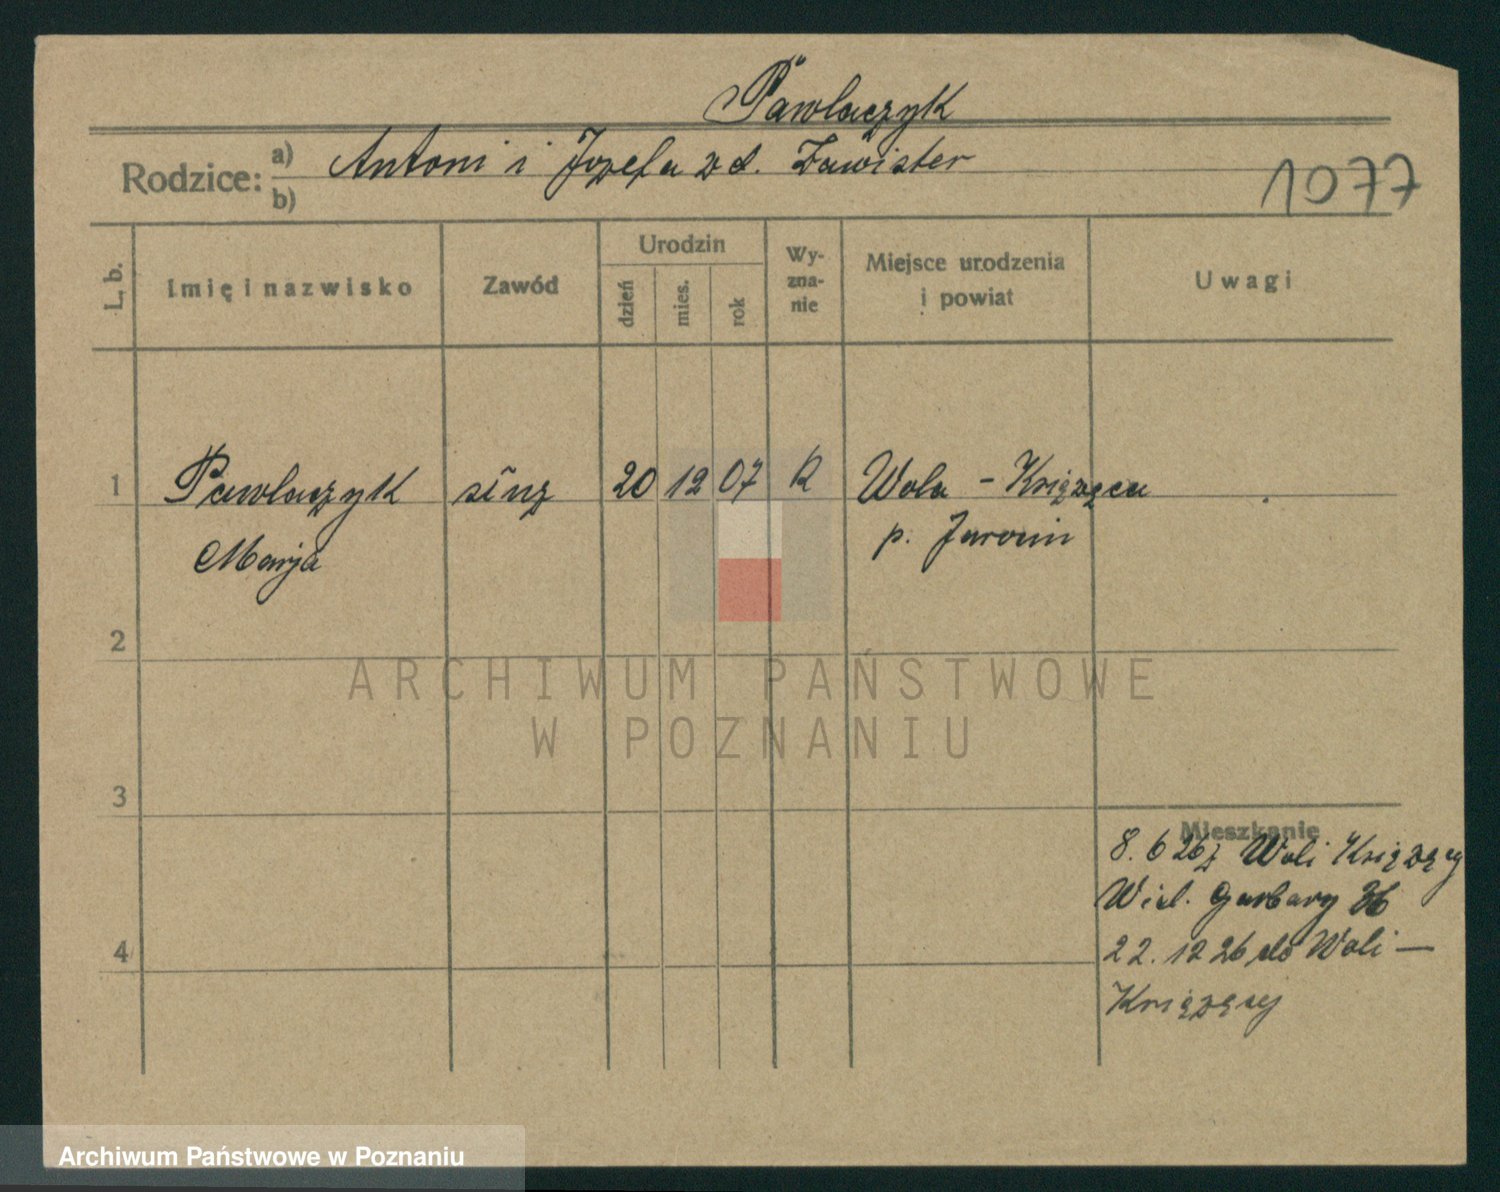 Pawlaczyk
Rodzice: a) Antoni i Jozefa z d. Zawister
b)
1077
L. b.
Imię i nazwisko
Zawód
Urodzin
dzień
mies.
rok
Wy-
zna-
nie
Miejsce urodzenia
i powiat
Uwagi
1 Pawlaczyk służ 20 12 07 R Wola - Książęca
Marja p. Jarocin
2
ARCHIWUM PAŃSTWOWE
W POZNANIU
3
Mieszkanie
8. 6 26 z Woli Książęcy
Wiel. Garbary 36
4
22. 12 26 do Woli —
Książęcej
Archiwum Państwowe w Poznaniu